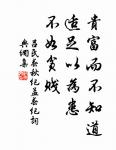 貴富而不知道
適足以為患
不如貧賤
呂氏春秋紀孟春紀詞
典網集